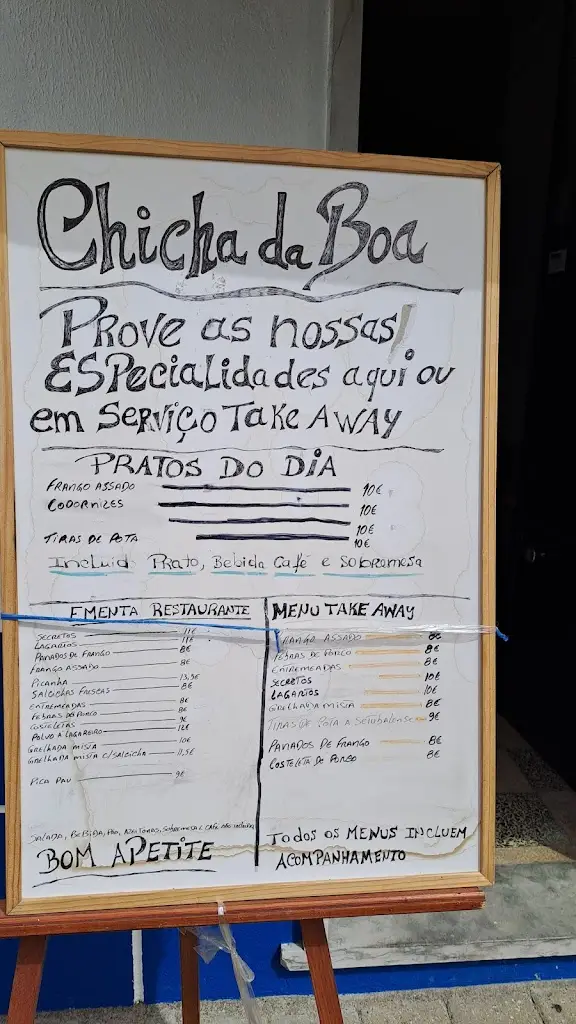 Chicha da Boa
PROVE as nossas
ESPecialidades aqui ou
em SERVIÇO TAKE AWAY
PRATOS DO DIA
FRANGO ASSADO 10€
CODORNIZES 10€
10€
TIRAS DE POTA 10€
Incluid Prato, Bebida Café e Sobremesa
EMENTA RESTAURANTE
SECRETOS 11€
LAGARTOS 11€
PANADOS DE FRANGO 8€
FRANGO ASSADO 8€
PICANHA 13,5€
SALSICHAS FRESCAS 8€
ENTREMEADAS 8€
FEBRAS DE PORCO 8€
COSTELETAS 9€
POLVO A LAGAREIRO 12€
GRELHADA MISTA 10€
GRELHADA MISTA C/SALSICHA 11,5€
PICA PAU 9€
SALADA, BEBIDA, PÃO, AZEITONAS, SOBREMESA E CAFÉ NÃO
BOM APETITE
MENU TAKE AWAY
FRANGO ASSADO 8€
FEBRAS DE PORCO 8€
ENTREMEADAS 8€
SECRETOS 10€
LAGARTOS 10€
GRELHADA MISTA 8€
TIRAS DE POTA A SETUBALENSE 9€
PANADOS DE FRANGO 8€
COSTELETA DE PORCO 8€
TODOS OS MENUS INCLUEM
ACOMPANHAMENTO